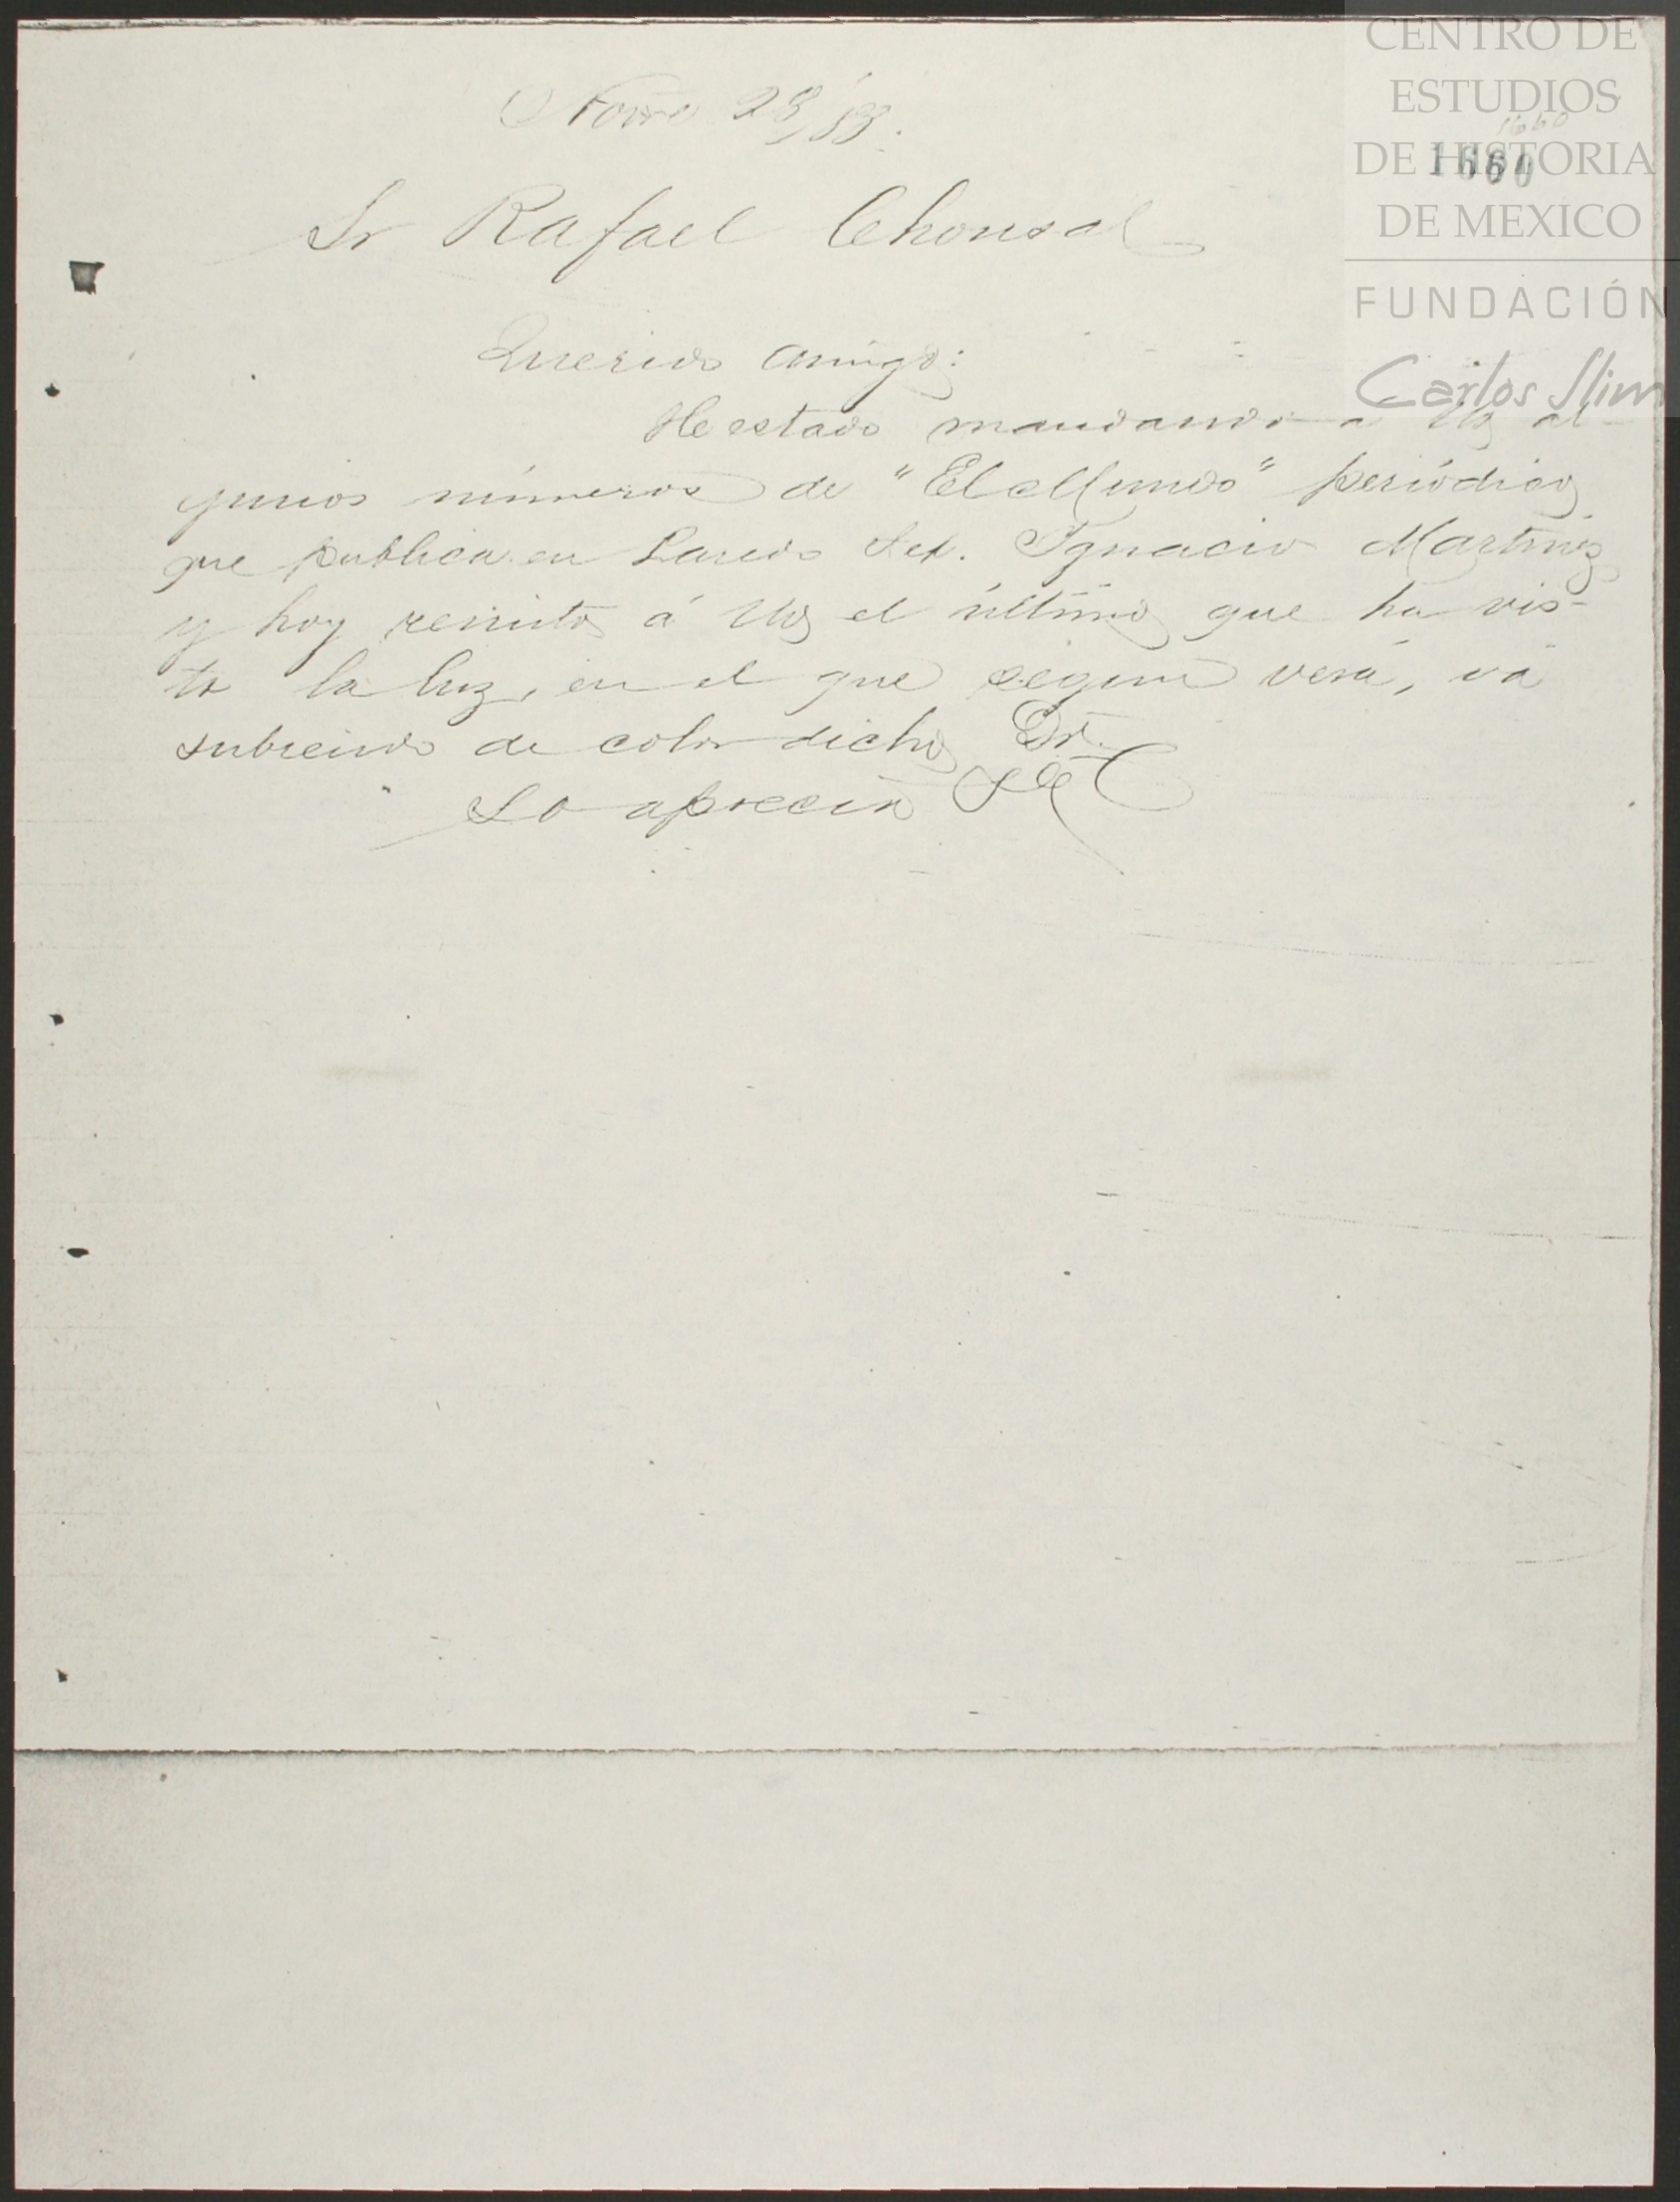 CENTRO DE
ESTUDIOS
DE HISTORIA
DE MEXICO
FUNDACIÓN
Carlos Slim
1660
1660
Novre 28/88.
Sr Rafael Chousal
Querido amigo:
He estado mandando a Ud al-
gunos números de "El Mundo" periódico
que publica en Laredo Tex. Ygnacio Martinez
y hoy remito á Ud el último que ha vis-
to la luz, en el que segun verá, vá
subiendo de color dicho Dr.
Lo aprecia